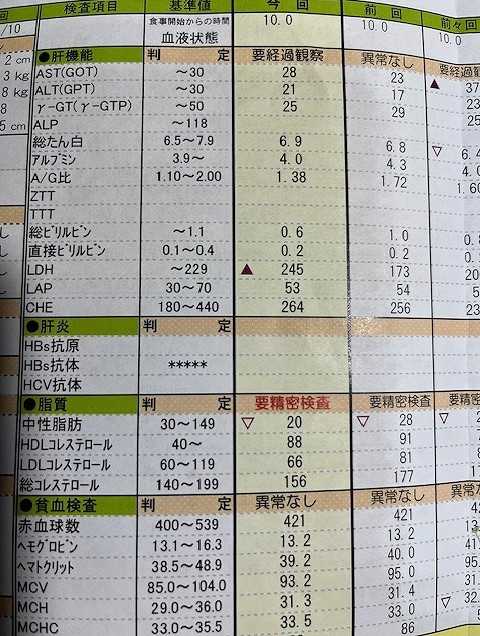 /10
検査項目 基準値 今回 前回 前々回
食事開始からの時間 10.0 10.0 10.0
血液状態
●肝機能 判定 要経過観察 異常なし 要経過観
AST(GOT) ～30 28 23 ▲ 37
ALT(GPT) ～30 21 17 23
γ-GT(γ-GTP) ～50 25 29 25
ALP ～118
総たん白 6.5～7.9 6.9 6.8 ▽ 6.4
ｱﾙﾌﾞﾐﾝ 3.9～ 4.0 4.3 4.0
A/G比 1.10～2.00 1.38 1.72 1.60
ZTT
TTT
総ﾋﾞﾘﾙﾋﾞﾝ ～1.1 0.6 1.0 0.8
直接ﾋﾞﾘﾙﾋﾞﾝ 0.1～0.4 0.2 0.2 0.
LDH ～229 ▲ 245 173 20
LAP 30～70 53 54 5
CHE 180～440 264 256 23
●肝炎 判定
HBs抗原
HBs抗体 *****
HCV抗体
●脂質 判定 要精密検査 要精密検査 要精
中性脂肪 30～149 ▽ 20 ▽ 28 ▽
HDLｺﾚｽﾃﾛｰﾙ 40～ 88 91
LDLｺﾚｽﾃﾛｰﾙ 60～119 66 81 8
総ｺﾚｽﾃﾛｰﾙ 140～199 156 177 1
●貧血検査 判定 異常なし 異常なし 異常な
赤血球数 400～539 421 421 42
ﾍﾓｸﾞﾛﾋﾞﾝ 13.1～16.3 13.2 13.2 13.
ﾍﾏﾄｸﾘｯﾄ 38.5～48.9 39.2 40.0 41.
MCV 85.0～104.0 93.2 95.0 95.
MCH 29.0～36.0 31.3 31.4 31.
MCHC 33.0～35.5 33.5 33.0 ▽ 32.